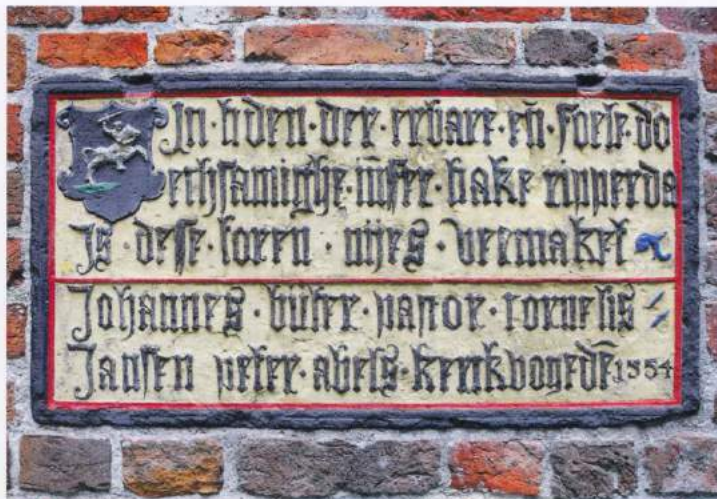 In · tiden · der · erbare · eñ · foele · do
echsamighe · iũfer · hake · ripperda
Is · dese · toren · nijes · vermaket
Johannes · buter · pastor · cornelis
Jansen peter · abels · kerkvogedē 1554